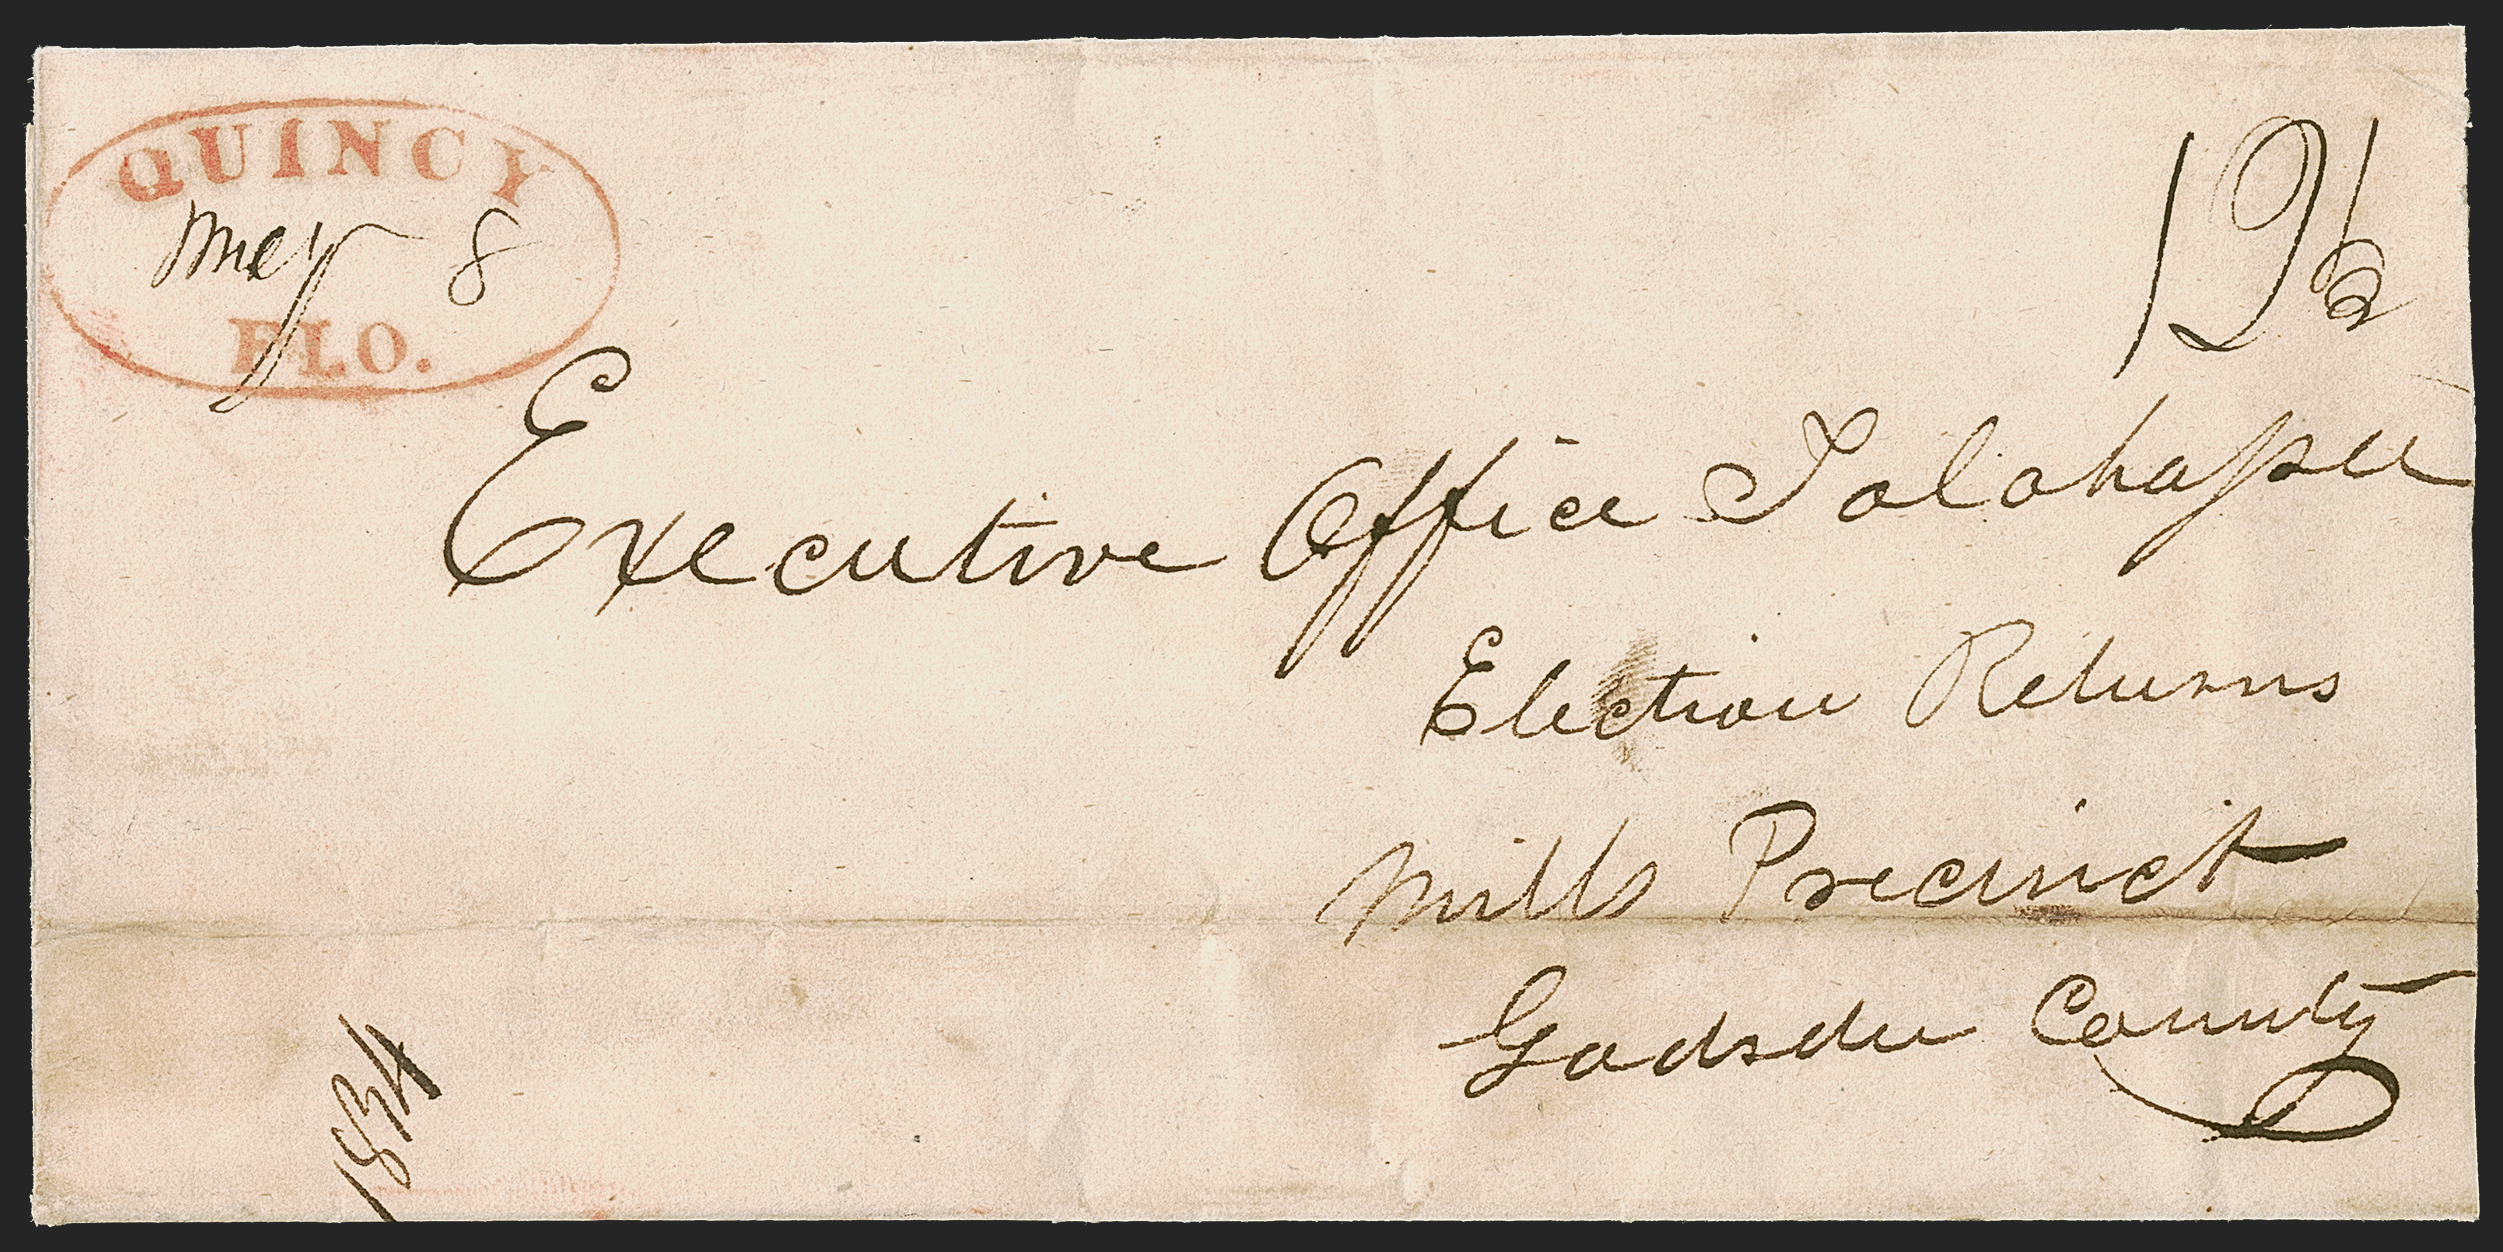 QUINCY
May 8
FLO.
12 1/2
Executive Office Talahassee
Election Returns
Mills Precinct
Gadsden County
1834